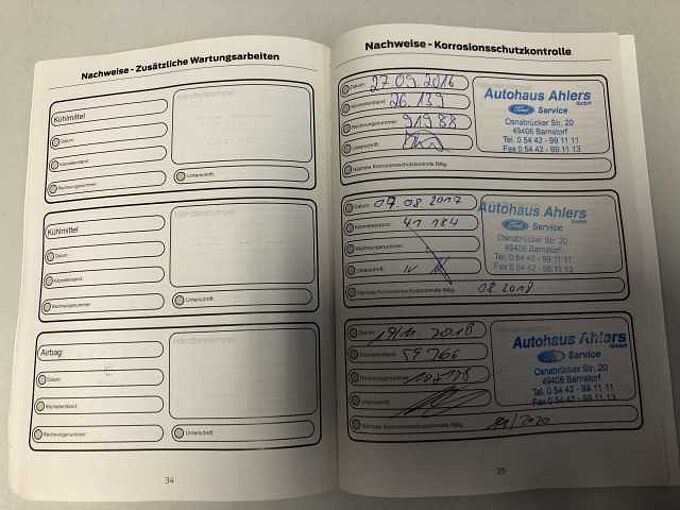 Nachweise - Zusätzliche Wartungsarbeiten
Kühlmittel
Händlerstempel
Datum:
Kilometerstand:
Rechnungsnummer:
Unterschrift:
Kühlmittel
Händlerstempel
Datum:
Kilometerstand:
Rechnungsnummer:
Unterschrift:
Airbag
Händlerstempel
Datum:
Kilometerstand:
Rechnungsnummer:
Unterschrift:
34
Nachweise - Korrosionsschutzkontrolle
Datum: 27.09.2016
Kilometerstand: 26.139
Rechnungsnummer: 91988
Unterschrift:
Nächste Korrosionsschutzkontrolle fällig:
Autohaus Ahlers
GmbH
Ford Service
Osnabrücker Str. 20
49406 Barnstorf
Tel. 0 54 42 - 99 11 11
Fax 0 54 42 - 99 11 13
Datum: 07.08.2017
Kilometerstand: 41 184
Rechnungsnummer:
Unterschrift:
Nächste Korrosionsschutzkontrolle fällig: 08 2018
Autohaus Ahlers
GmbH
Ford Service
Osnabrücker Str. 20
49406 Barnstorf
Tel. 0 54 42 - 99 11 11
Fax 0 54 42 - 99 11 13
Datum: 19/11 2018
Kilometerstand: 59 766
Rechnungsnummer:
Unterschrift:
Nächste Korrosionsschutzkontrolle fällig: 11/2020
Autohaus Ahlers
GmbH
Ford Service
Osnabrücker Str. 20
49406 Barnstorf
Tel. 0 54 42 - 99 11 11
Fax 0 54 42 - 99 11 13
35